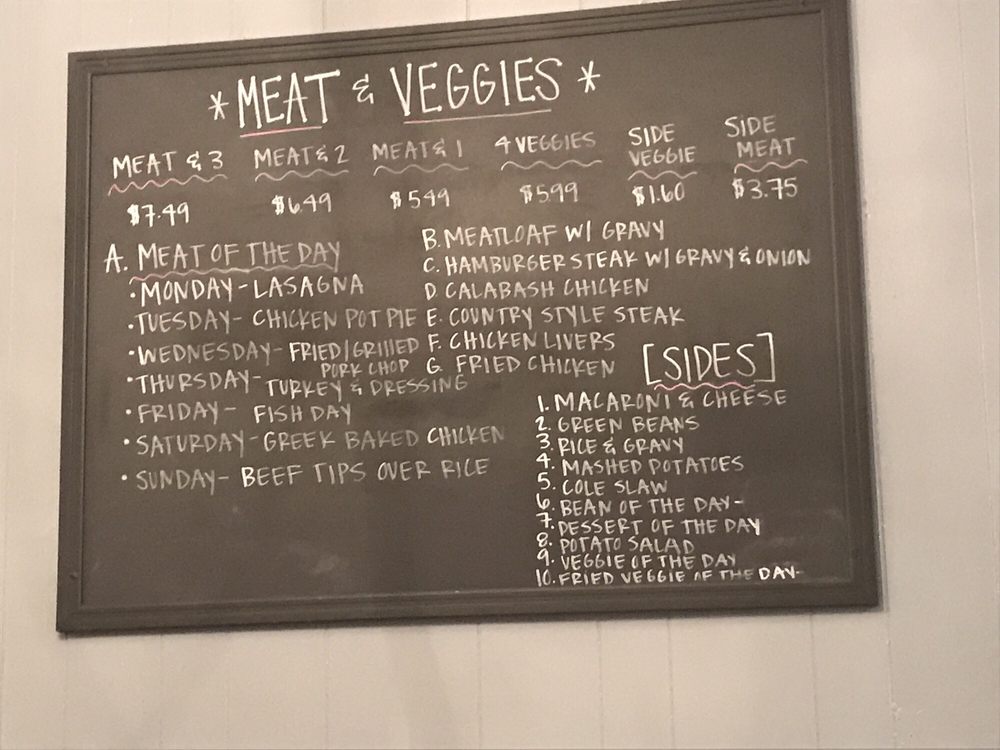 * MEAT & VEGGIES *
MEAT & 3 MEAT & 2 MEAT & 1 4 VEGGIES SIDE VEGGIE SIDE MEAT
$7.49 $6.49 $5.49 $5.99 $1.60 $3.75
A. MEAT OF THE DAY
• MONDAY - LASAGNA
• TUESDAY - CHICKEN POT PIE
• WEDNESDAY - FRIED/GRILLED
PORK CHOP
• THURSDAY - TURKEY & DRESSING
• FRIDAY - FISH DAY
• SATURDAY - GREEK BAKED CHICKEN
• SUNDAY - BEEF TIPS OVER RICE
B. MEATLOAF W/ GRAVY
C. HAMBURGER STEAK W/ GRAVY & ONION
D. CALABASH CHICKEN
E. COUNTRY STYLE STEAK
F. CHICKEN LIVERS
G. FRIED CHICKEN
[SIDES]
1. MACARONI & CHEESE
2. GREEN BEANS
3. RICE & GRAVY
4. MASHED POTATOES
5. COLE SLAW
6. BEAN OF THE DAY -
7. DESSERT OF THE DAY
8. POTATO SALAD
9. VEGGIE OF THE DAY
10. FRIED VEGGIE OF THE DAY -